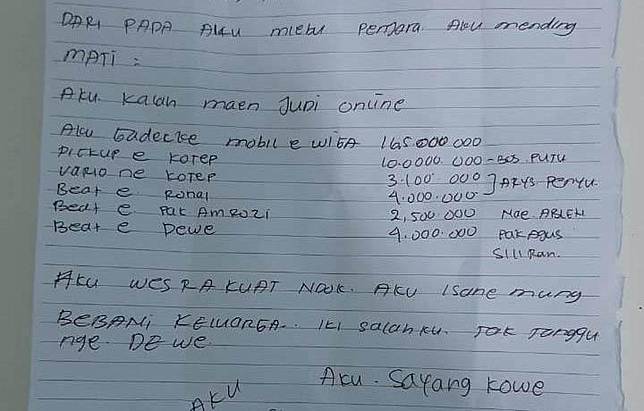 DARI PADA AKU mlebu Penjara Aku mending
MATI :
Aku. Kalah maen Judi online
Aku Gadecke mobil e WIGA 165.000.000
Pickup e Kotep 10.0000.000 - Bos PUTU
Vario ne Kotep 3.100.000 ] ARYS Penyu.
Beat e Ronal 4.000.000
Beat e Pak Amrozi 2,500.000 Nae ABLEH
Beat e Dewe 4.000.000 Pak Agus
Siliran.
Aku wes RA KUAT Nduk. Aku Isane mung
BEBANi KELUARGA. Iki salahku. Tak Tanggu
nge. DEWE
Aku. Sayang Kowe
AKU